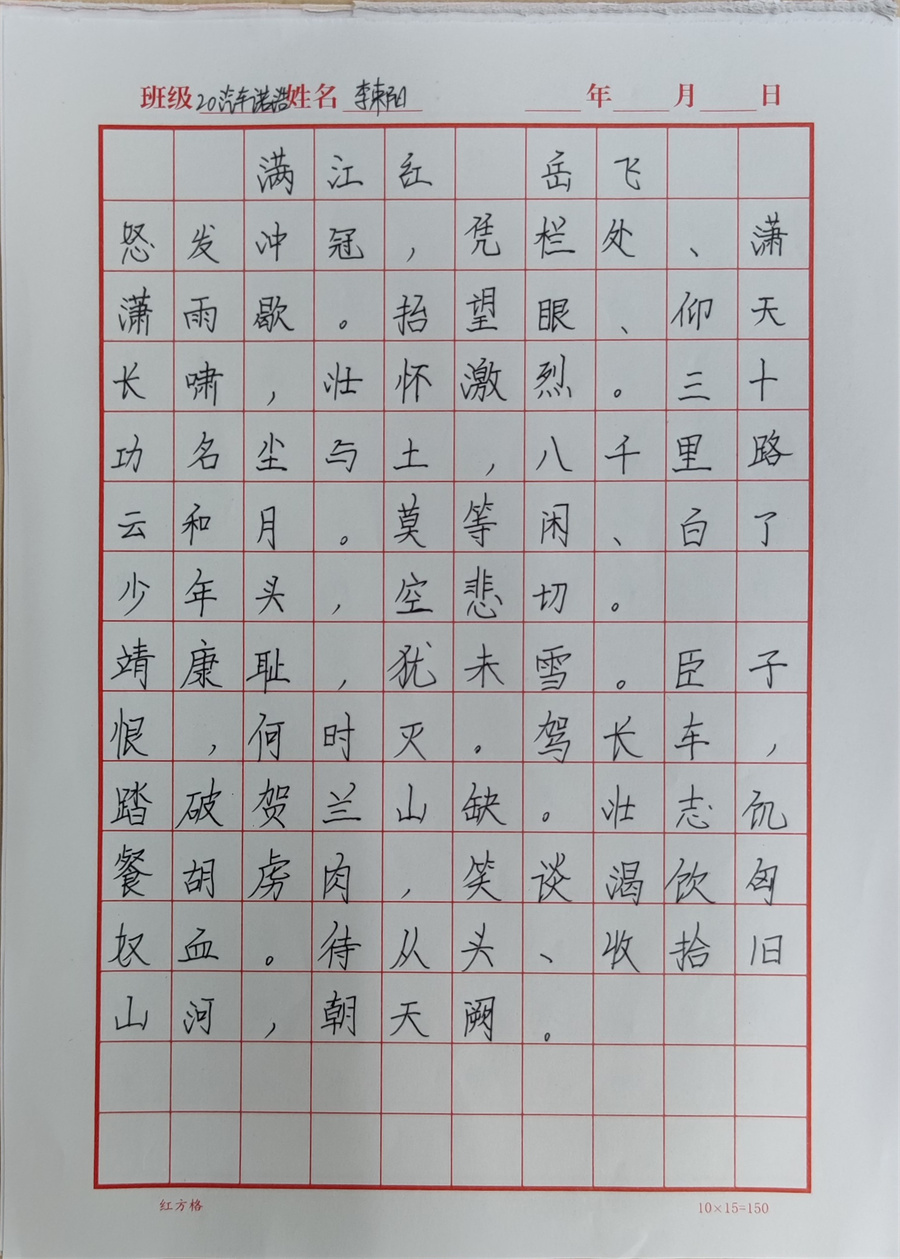 班级 20汽车诺浩 姓名 李東阳 年 月 日
满江红 岳飞
怒发冲冠，凭栏处、潇
潇雨歇。抬望眼、仰天
长啸，壮怀激烈。三十
功名尘与土，八千里路
云和月。莫等闲、白了
少年头，空悲切。
靖康耻，犹未雪。臣子
恨，何时灭。驾长车，
踏破贺兰山缺。壮志饥
餐胡虏肉，笑谈渴饮匈
奴血。待从头、收拾旧
山河，朝天阙。
红方格 10×15=150